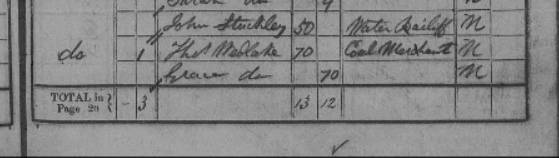 Sarah do 4
John Stuckley 50 Water Bailiff N
do 1 Thos Wedlake 70 Coal Merchant N
Grace do 70 N
TOTAL in Page 20 } - 3 13 12